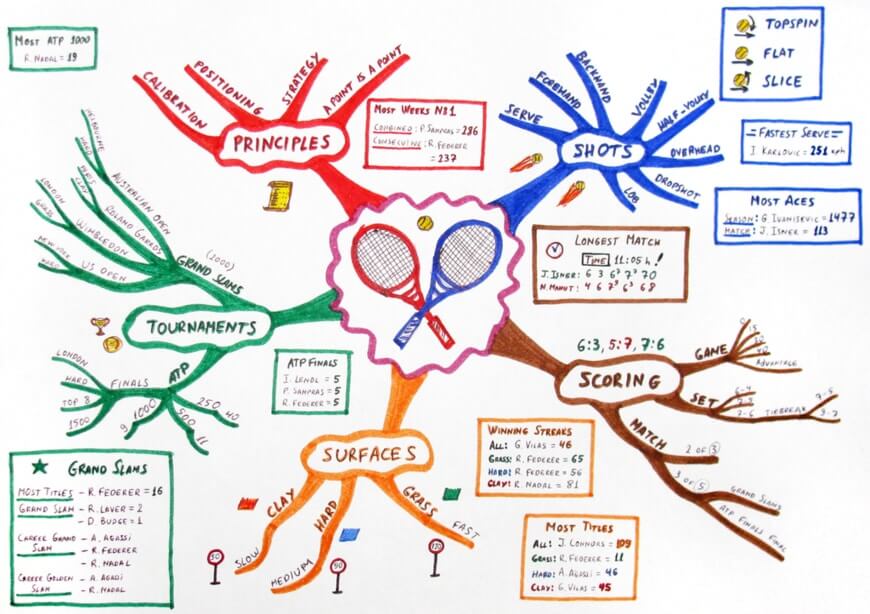 MOST ATP 1000
R. NADAL = 19
CALIBRATION
POSITIONING
STRATEGY
A POINT IS A POINT
PRINCIPLES
MOST WEEKS N§1
COMBINED: P. SAMPRAS = 286
CONSECUTIVE: R. FEDERER
= 237
SERVE
FOREHAND
BACKHAND
VOLLEY
HALF-VOLLEY
OVERHEAD
DROPSHOT
LOB
SHOTS
TOPSPIN
FLAT
SLICE
FASTEST SERVE
I. KARLOVIC = 251 kph
MOST ACES
SEASON: G. IVANISEVIC = 1477
MATCH: J. ISNER = 113
LONGEST MATCH
TIME 11:05 h!
J. ISNER: 6 3 6⁷ 7⁷ 70
N. MAHUT: 4 6 7⁹ 6³ 68
MELBOURNE
HARD
AUSTRALIAN OPEN
PARIS
CLAY
ROLAND GARROS
LONDON
GRASS
WIMBLEDON
NEW YORK
HARD
US OPEN
GRAND SLAMS
(2000)
TOURNAMENTS
ATP
FINALS
LONDON
HARD
TOP 8
1500
1000
9
500
11
250
40
ATP FINALS
I. LENDL = 5
P. SAMPRAS = 5
R. FEDERER = 5
6:3, 5:7, 7:6
SCORING
GAME
0
15
30
40
ADVANTAGE
SET
6-4
7-5
7-6
TIEBREAK
7-5
9-7
MATCH
2 OF 3
3 OF 5
GRAND SLAMS
ATP FINALS FINAL
SURFACES
CLAY
SLOW
HARD
MEDIUM
GRASS
FAST
50
90
130
WINNING STREAKS
ALL: G. VILAS = 46
GRASS: R. FEDERER = 65
HARD: R. FEDERER = 56
CLAY: R. NADAL = 81
MOST TITLES
ALL: J. CONNORS = 109
GRASS: R. FEDERER = 11
HARD: A. AGASSI = 46
CLAY: G. VILAS = 45
GRAND SLAMS
MOST TITLES - R. FEDERER = 16
GRAND SLAM - R. LAVER = 2
- D. BUDGE = 1
CAREER GRAND SLAM - A. AGASSI
- R. FEDERER
- R. NADAL
CAREER GOLDEN SLAM - A. AGASI
- R. NADAL